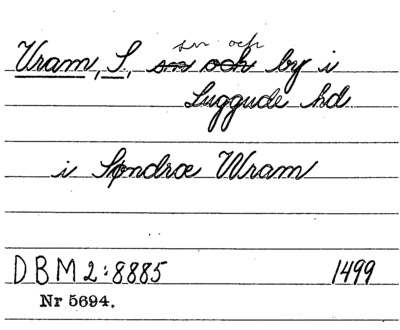 sn och
Vram, S., sn och by i
Luggude hd
i Søndræ Wram
DBM 2:8885 1499
Nr 5694.